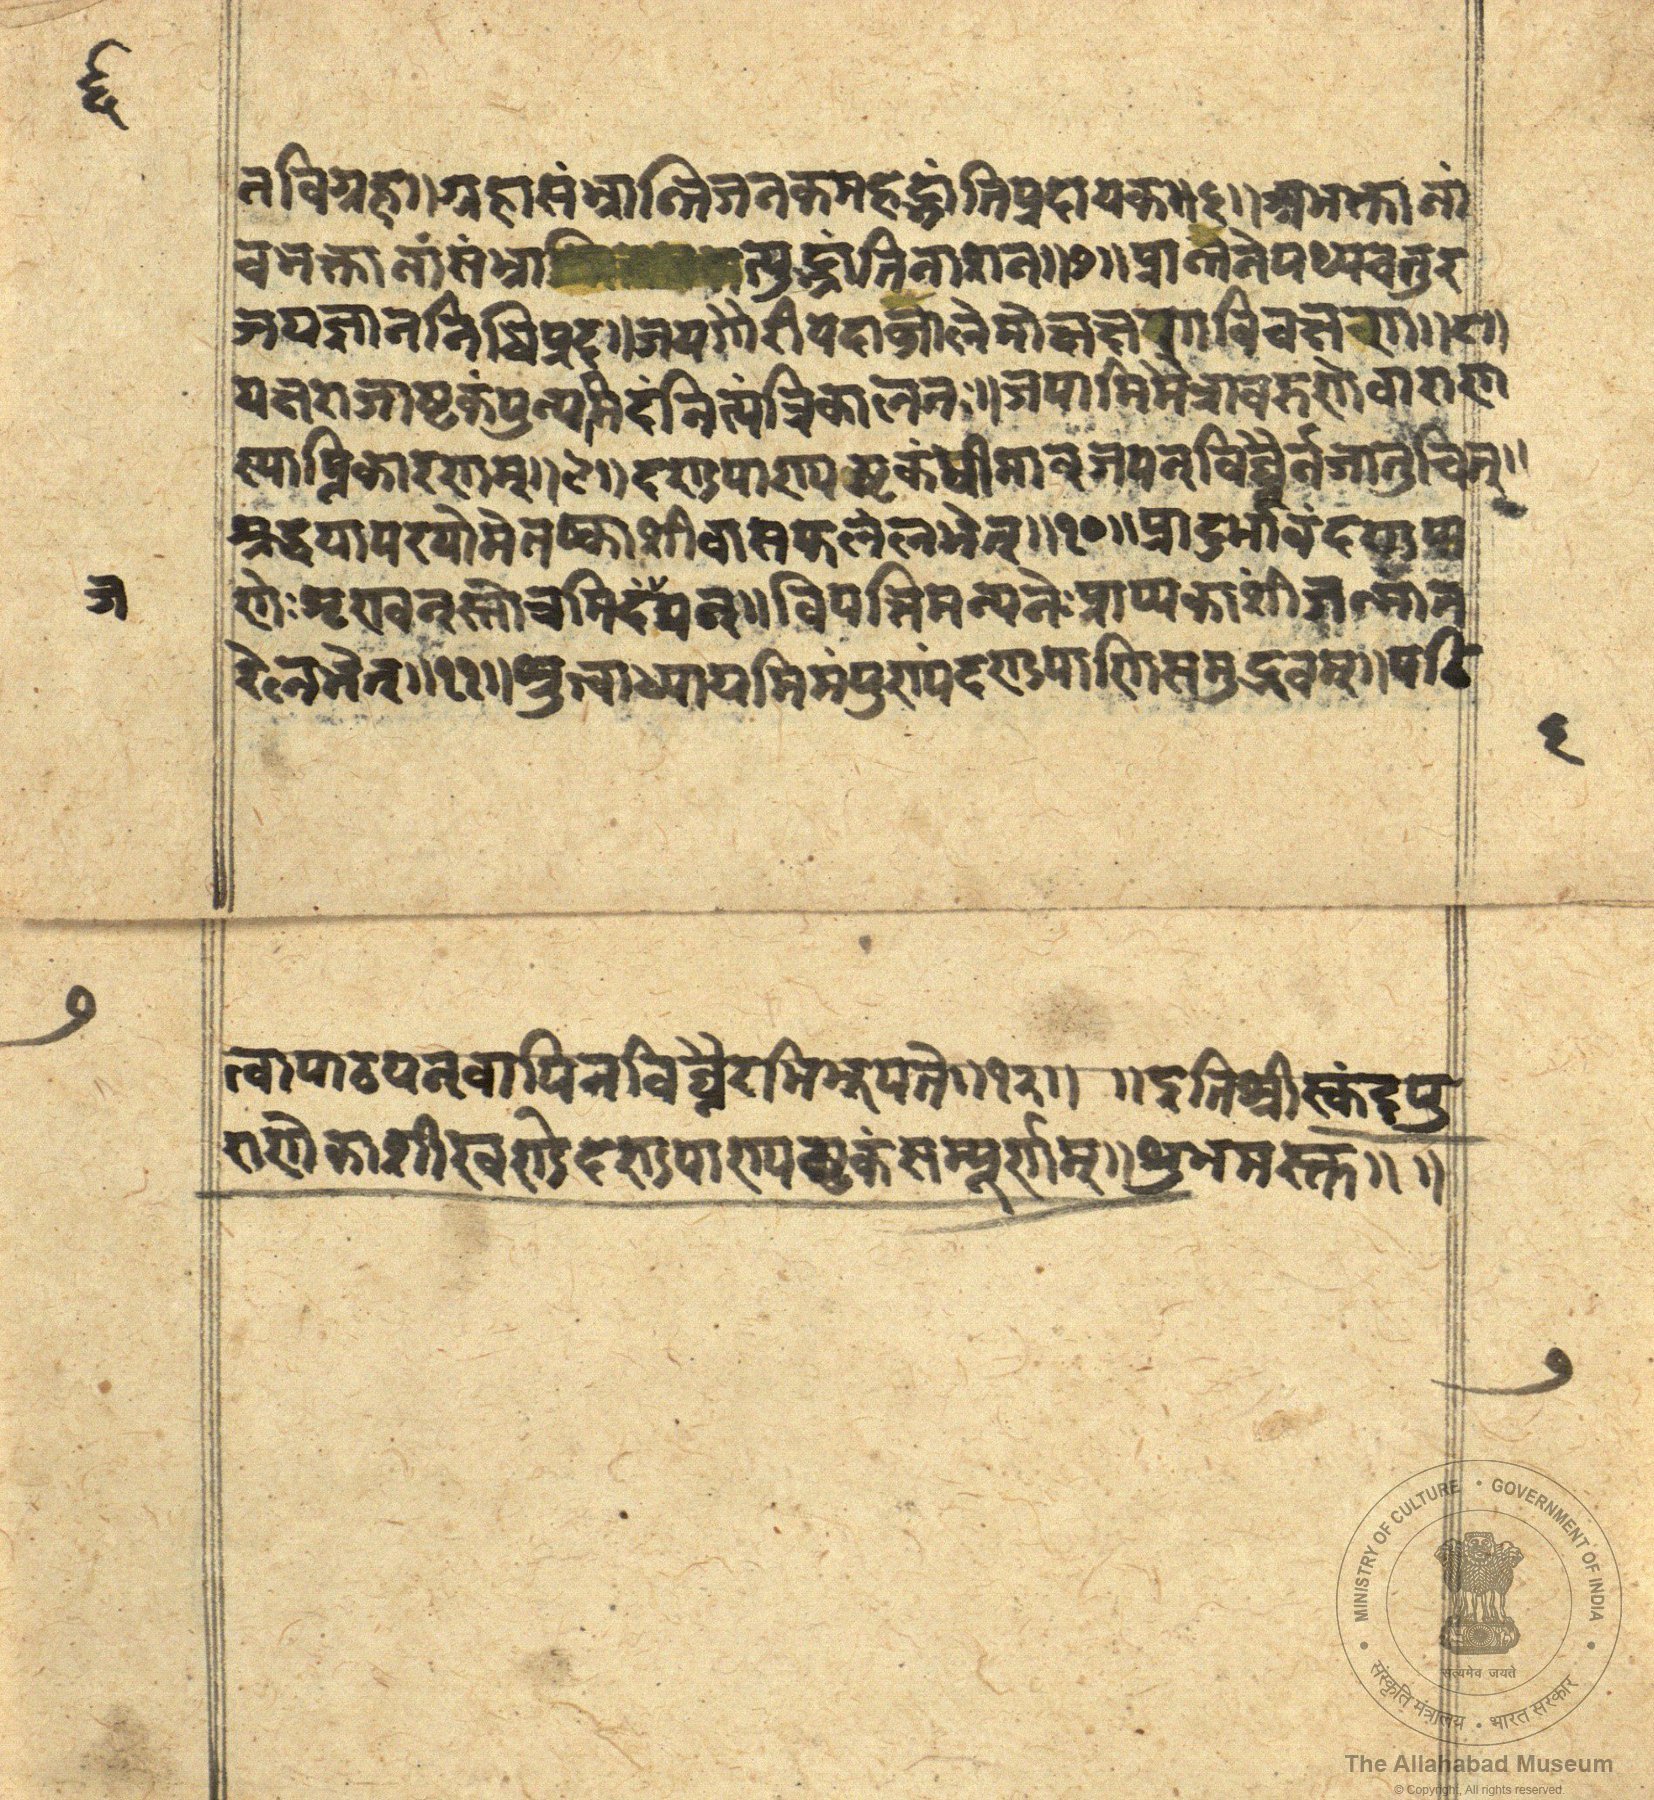 ६
तविग्रह॥महासंभ्रान्तिजनकमहद्भ्रांतिप्रदायक॥६॥अभक्तानां
चभक्तानांसंभ्रा त्युद्भ्रांतिनाशन॥७॥प्रान्तनेपथ्यचतुर
जयज्ञाननिधिप्रद॥जयगौरीपदाब्जालेमोक्षेक्षणविचक्षण॥८॥
यक्षराजाष्टकंपुन्यमिदंनित्यंत्रिकालतः॥जपामिमैत्रावरुणेवाराण
स्याप्तिकारणम्॥९॥दण्डपाण्यष्टकंधीमान्जपन्विघ्नैर्नजातुचित्॥
श्रद्धयापरयोमेतष्काशीवासफलंलभेत्॥१०॥प्रादुर्भावंदण्डपा
ज
णेःशृण्वन्स्तोत्रमिदंपठन्॥विपत्तिमन्यतःप्राप्यकाशींजन्मान्त
रेलभेत्॥११॥श्रुत्वाध्यायमिमंपुण्यंदण्डपाणिसमुद्भवम्॥पठि
६
७
त्वापाठयन्वापिनविघ्नैरभिभूयते॥१२॥ ॥इतिश्रीस्कंदपु
राणेकाशीखण्डेदण्डपाण्यष्टकंसम्पूर्णम्॥शुभमस्तु॥ ॥
७
MINISTRY OF CULTURE • GOVERNMENT OF INDIA
सत्यमेव जयते
संस्कृति मंत्रालय • भारत सरकार
The Allahabad Museum
© Copyright, All rights reserved.